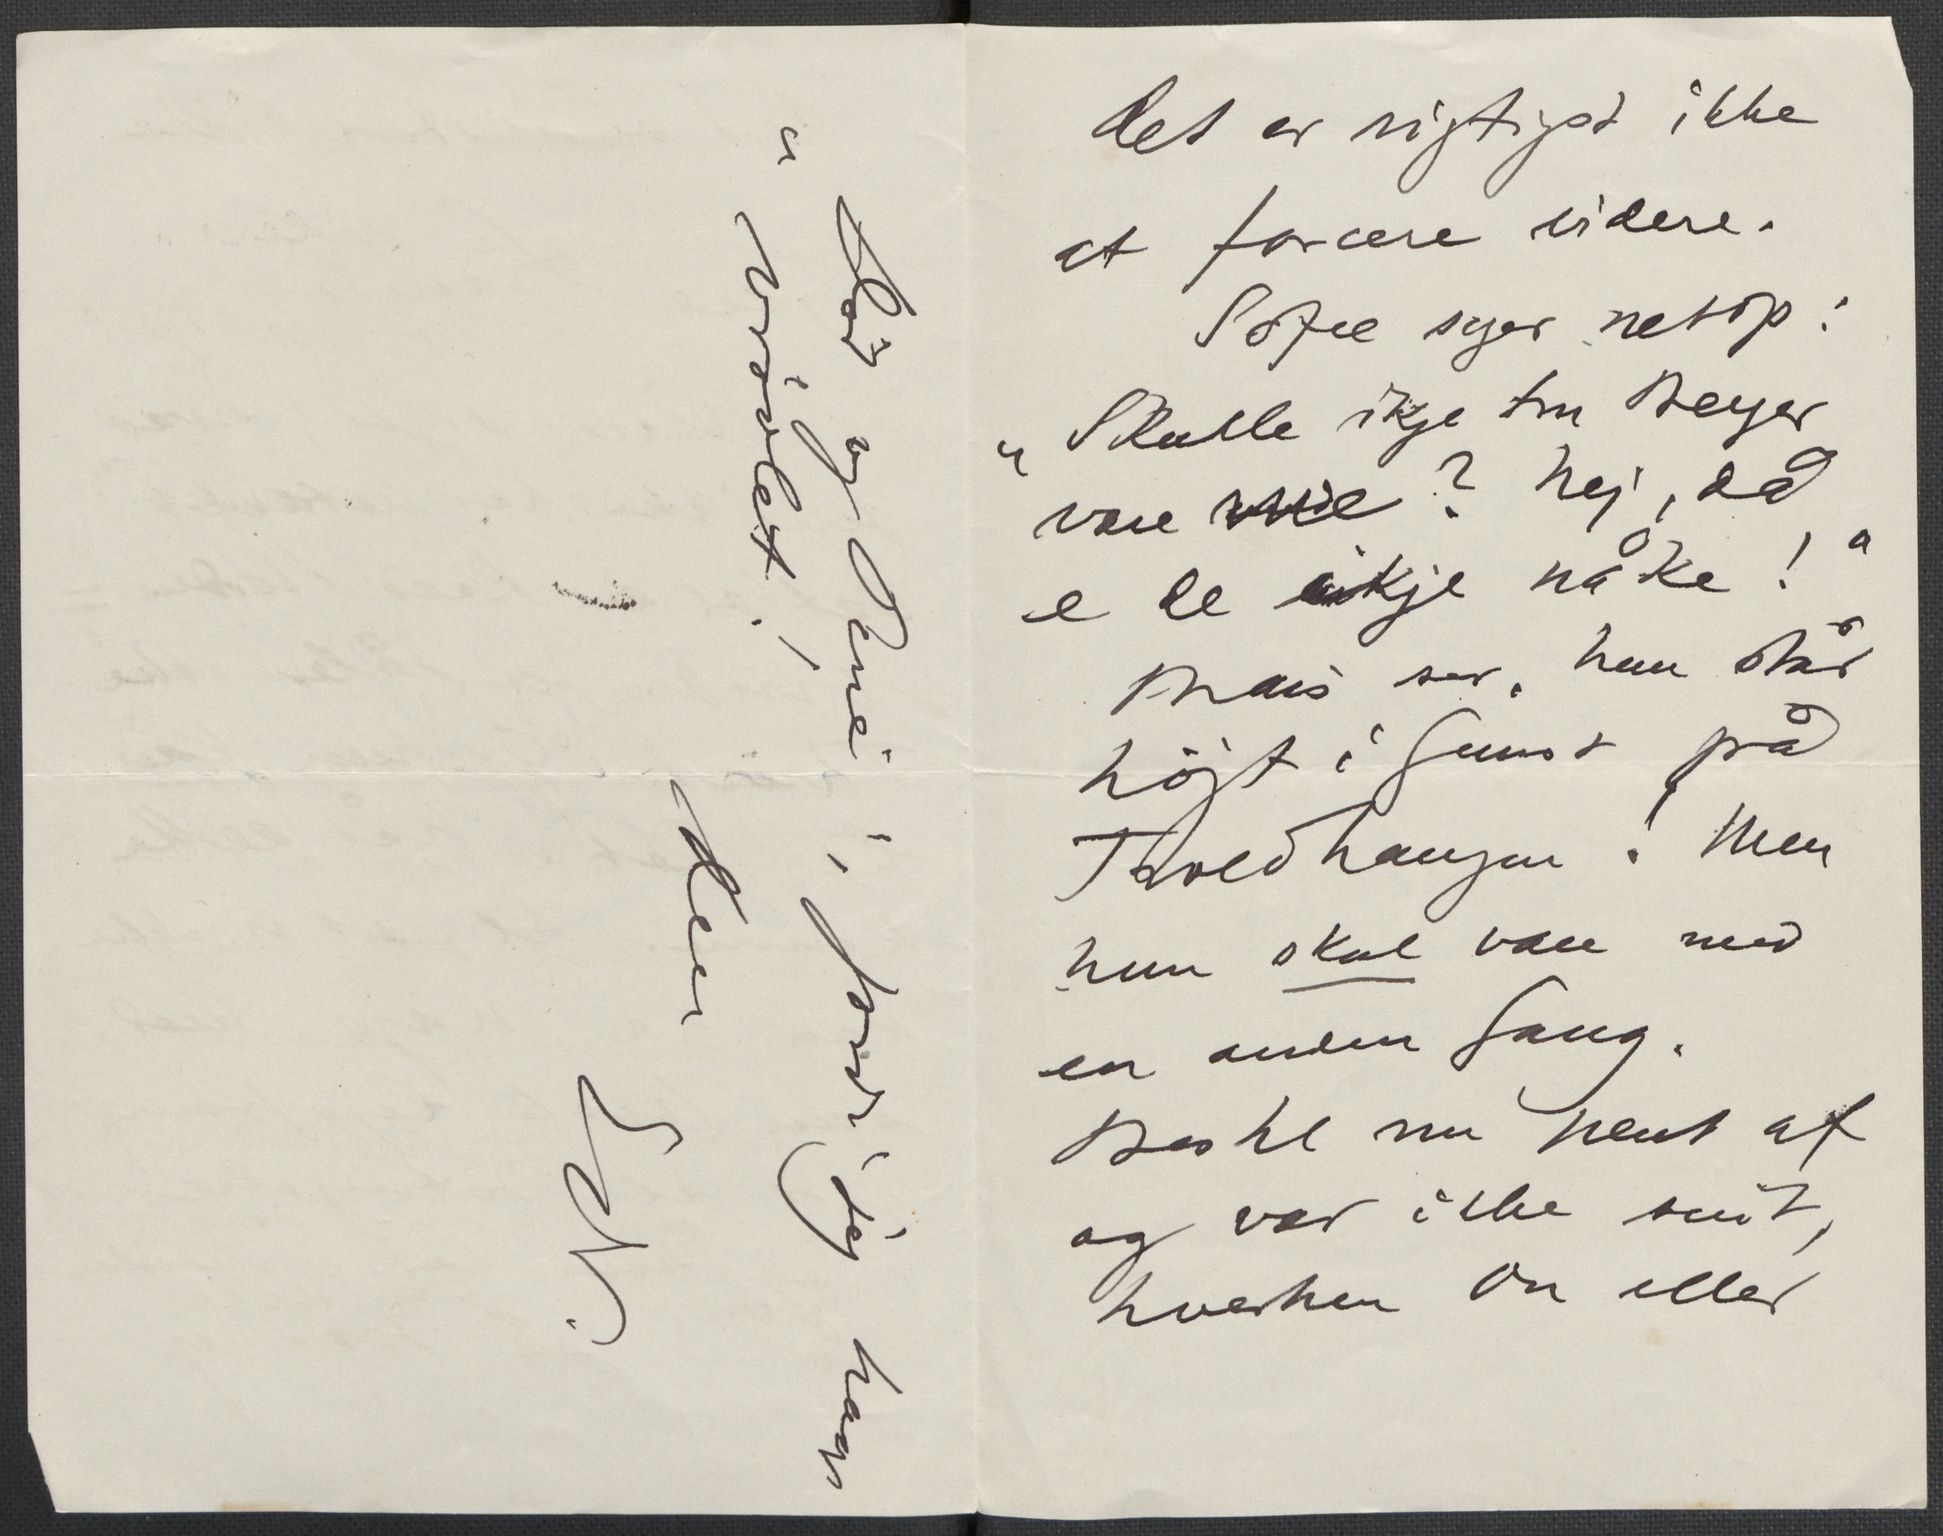 det er rigtigst ikke
at forcere videre.
Sofie siger netop:
„Skulle ikje fru Beyer
vare mæ? Nej, då
e de ikkje nåke!"
Mais ser, hun står
højt i Gunst på
Troldhaugen! Men
hun skal være med
en anden Gang.
Bestil nu pent af
og vær ikke sint,
hverken Du eller
Marie, fordi jeg har
„vrøvlet"!
Din
E.